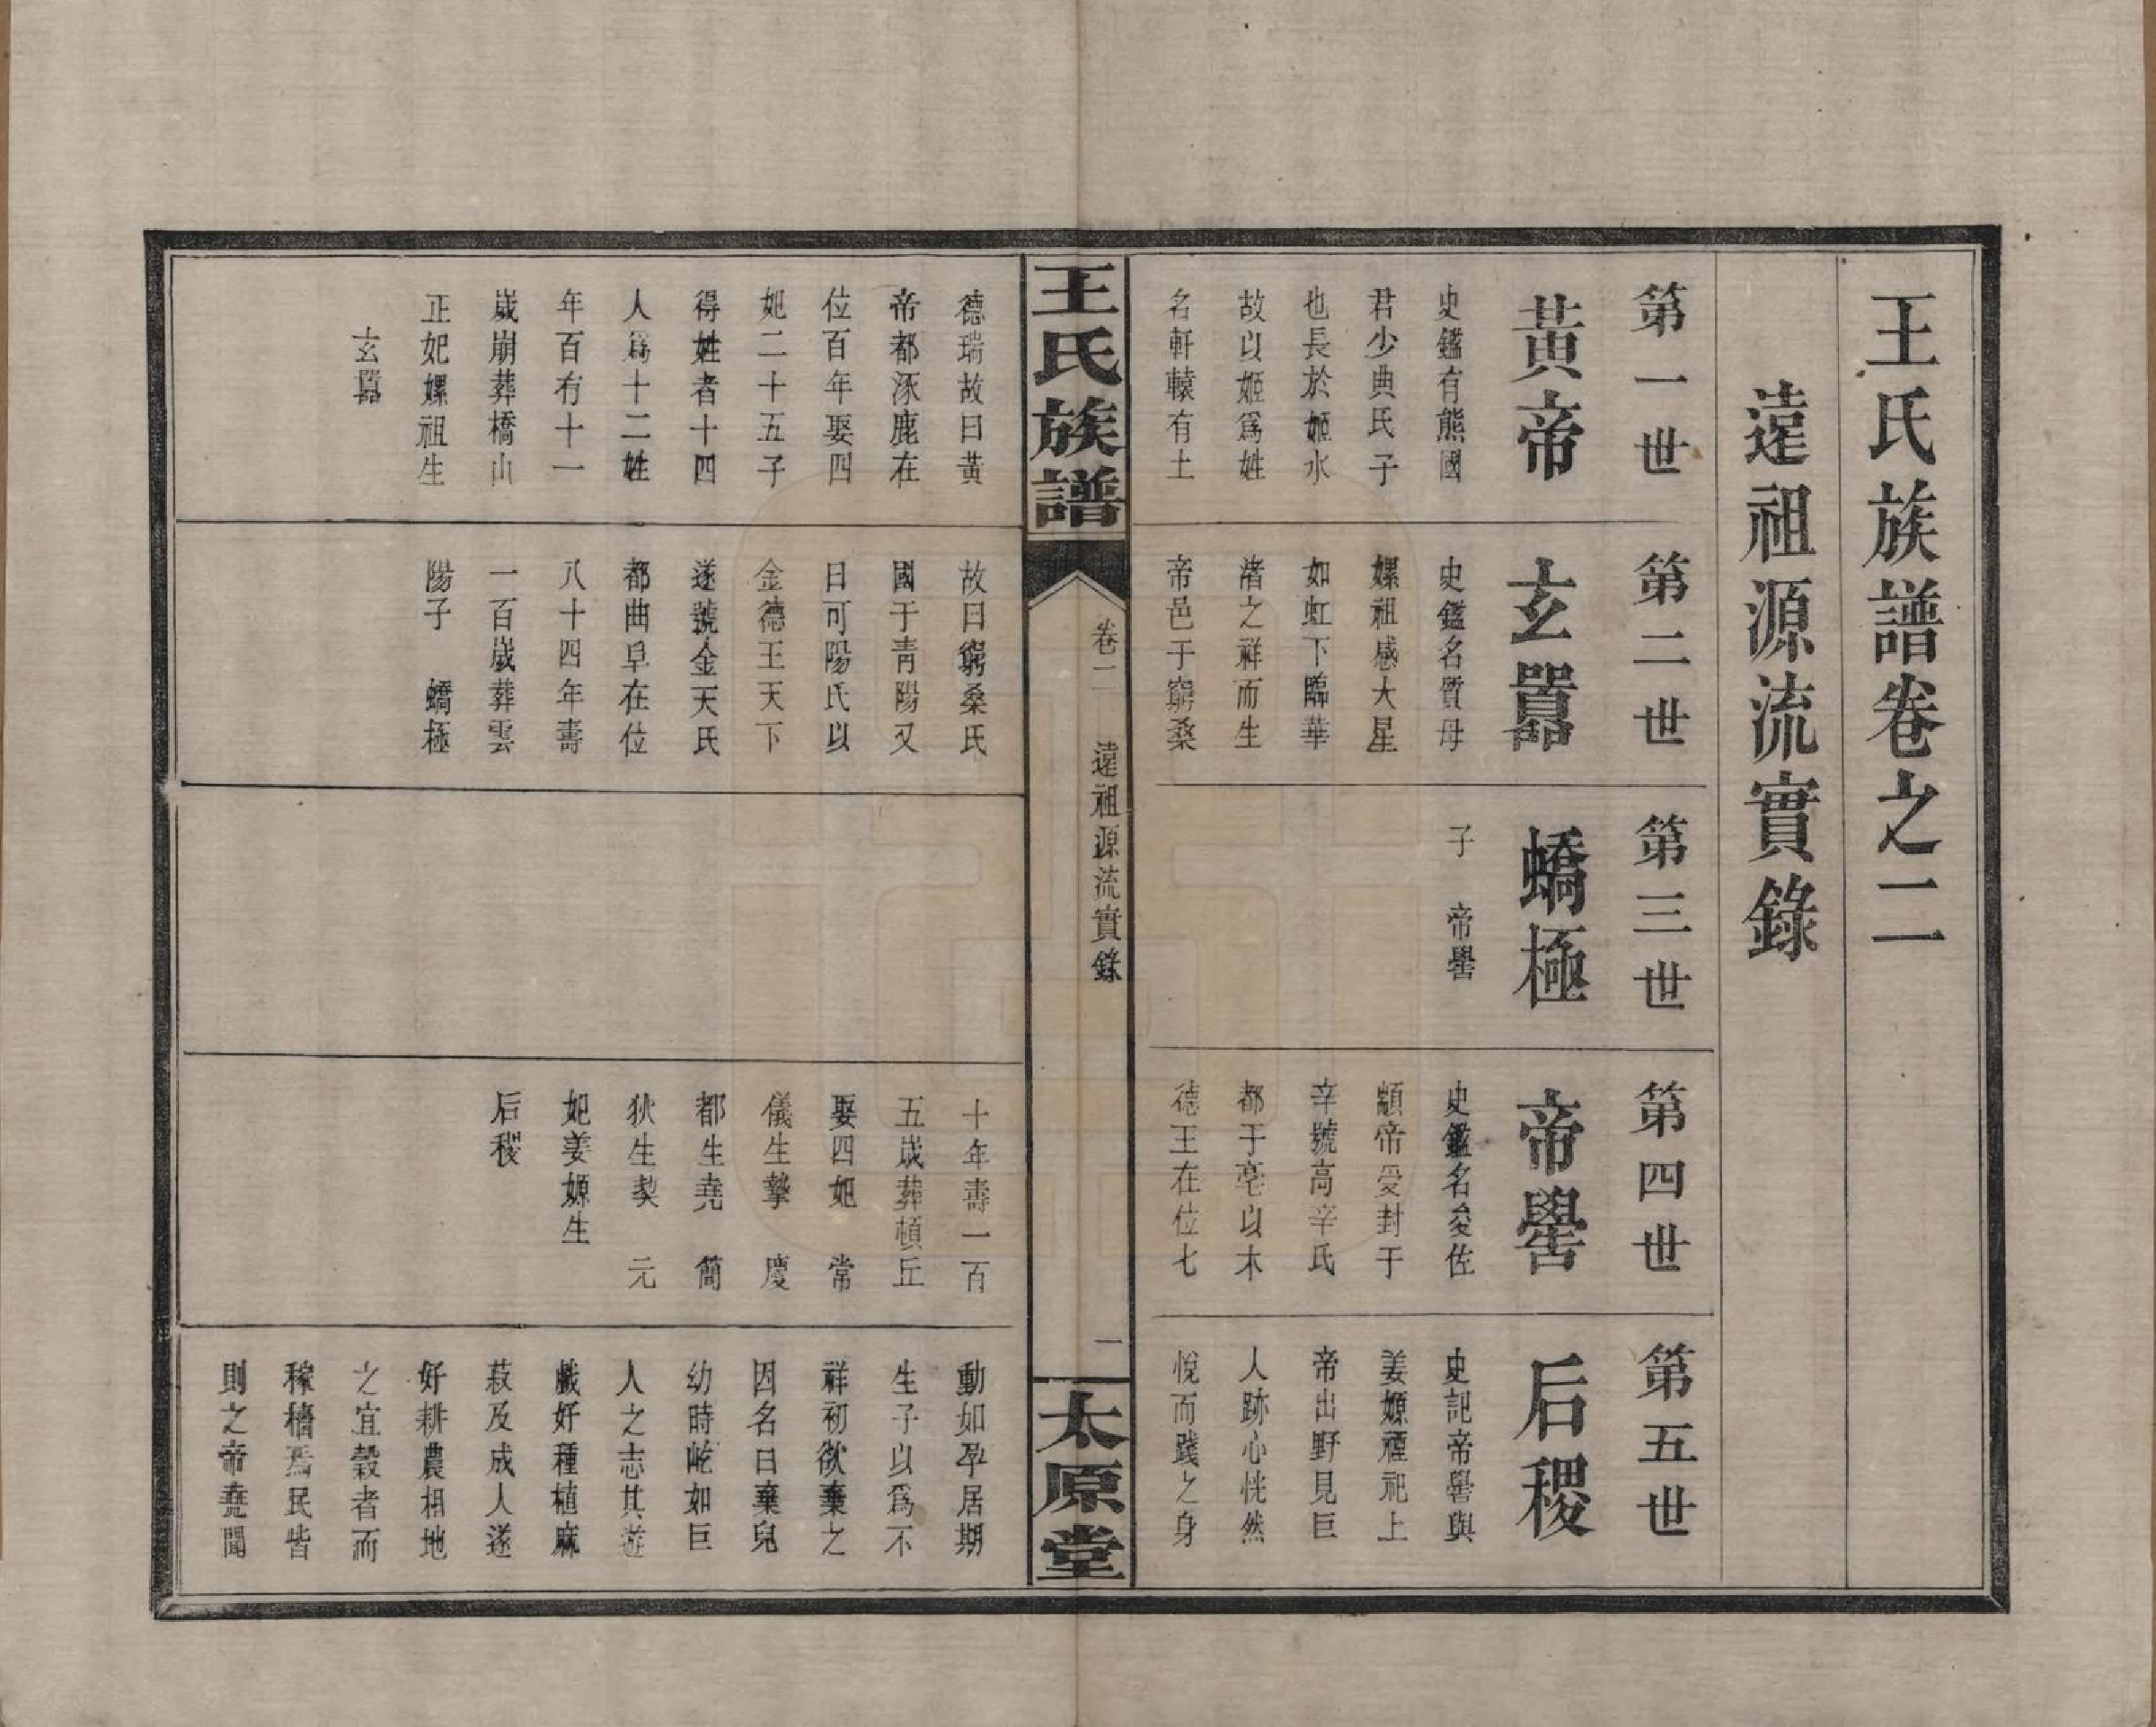 王氏族譜卷之二
遠祖源流實錄
第一世
黃帝
史鑑有熊國
君少典氏子
也長於姬水
故以姬爲姓
名軒轅有土
德瑞故曰黃
帝都涿鹿在
位百年娶四
妃二十五子
得姓者十四
人爲十二姓
年百有十一
歲崩葬橋山
正妃嫘祖生
玄囂
第二世
玄囂
史鑑名質母
嫘祖感大星
如虹下臨華
渚之祥而生
帝邑于窮桑
故曰窮桑氏
國于青陽又
曰可陽氏以
金德王天下
遂號金天氏
都曲阜在位
八十四年壽
一百歲葬雲
陽子 蟜極
第三世
蟜極
子 帝嚳
第四世
帝嚳
史鑑名夋佐
顓帝受封于
辛號高辛氏
都于亳以木
德王在位七
十年壽一百
五歲葬頓丘
娶四妃 常
儀生摯 慶
都生堯 簡
狄生契 元
妃姜嫄生
后稷
第五世
后稷
史記帝嚳與
姜嫄禋祀上
帝出野見巨
人跡心恍然
悅而踐之身
動如孕居期
生子以爲不
祥初欲棄之
因名曰棄兒
幼時屹如巨
人之志其遊
戲好種植麻
菽及成人遂
好耕農相地
之宜穀者而
稼穡焉民皆
則之帝堯聞
王氏族譜
卷二 遠祖源流實錄
一
太原堂